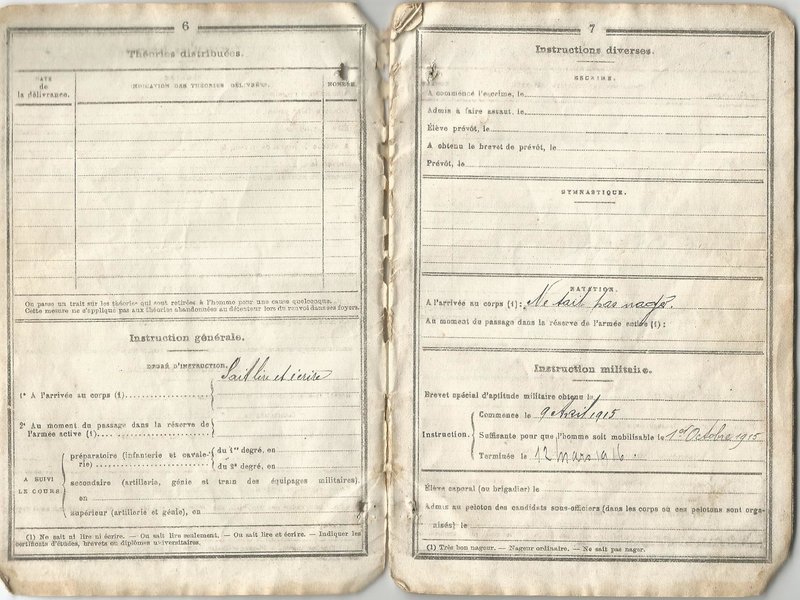 6
Théories distribuées.
DATE
de
la délivrance.
INDICATION DES THÉORIES DÉLIVRÉES.
NOMBRE.
On passe un trait sur les théories qui sont retirées à l'homme pour une cause quelconque.
Cette mesure ne s'applique pas aux théories abandonnées au détenteur lors du renvoi dans ses foyers.
Instruction générale.
DEGRÉ D'INSTRUCTION.
Sait lire et écrire
1° A l'arrivée au corps (1)
2° Au moment du passage dans la réserve de
l'armée active (1)
A SUIVI
LE COURS
préparatoire (infanterie et cavale-
rie)
du 1er degré, en
du 2e degré, en
secondaire (artillerie, génie et train des équipages militaires)
en
supérieur (artillerie et génie), en
(1) Ne sait ni lire ni écrire. — Ou sait lire seulement. — Ou sait lire et écrire. — Indiquer les
certificats d'études, brevets ou diplômes universitaires.
7
Instructions diverses.
ESCRIME.
A commencé l'escrime, le
Admis à faire assaut, le
Élève prévôt, le
A obtenu le brevet de prévôt, le
Prévôt, le
GYMNASTIQUE.
NATATION.
A l'arrivée au corps (1): Ne sait pas nager.
Au moment du passage dans la réserve de l'armée active (1):
Instruction militaire.
Brevet spécial d'aptitude militaire obtenu le
Instruction.
Commencée le 9 Avril 1915
Suffisante pour que l'homme soit mobilisable le 1er Octobre 1915
Terminée le 12 mars 1916
Élève caporal (ou brigadier) le
Admis au peloton des candidats sous-officiers (dans les corps où ces pelotons sont orga-
nisés) le
(1) Très bon nageur. — Nageur ordinaire. — Ne sait pas nager.